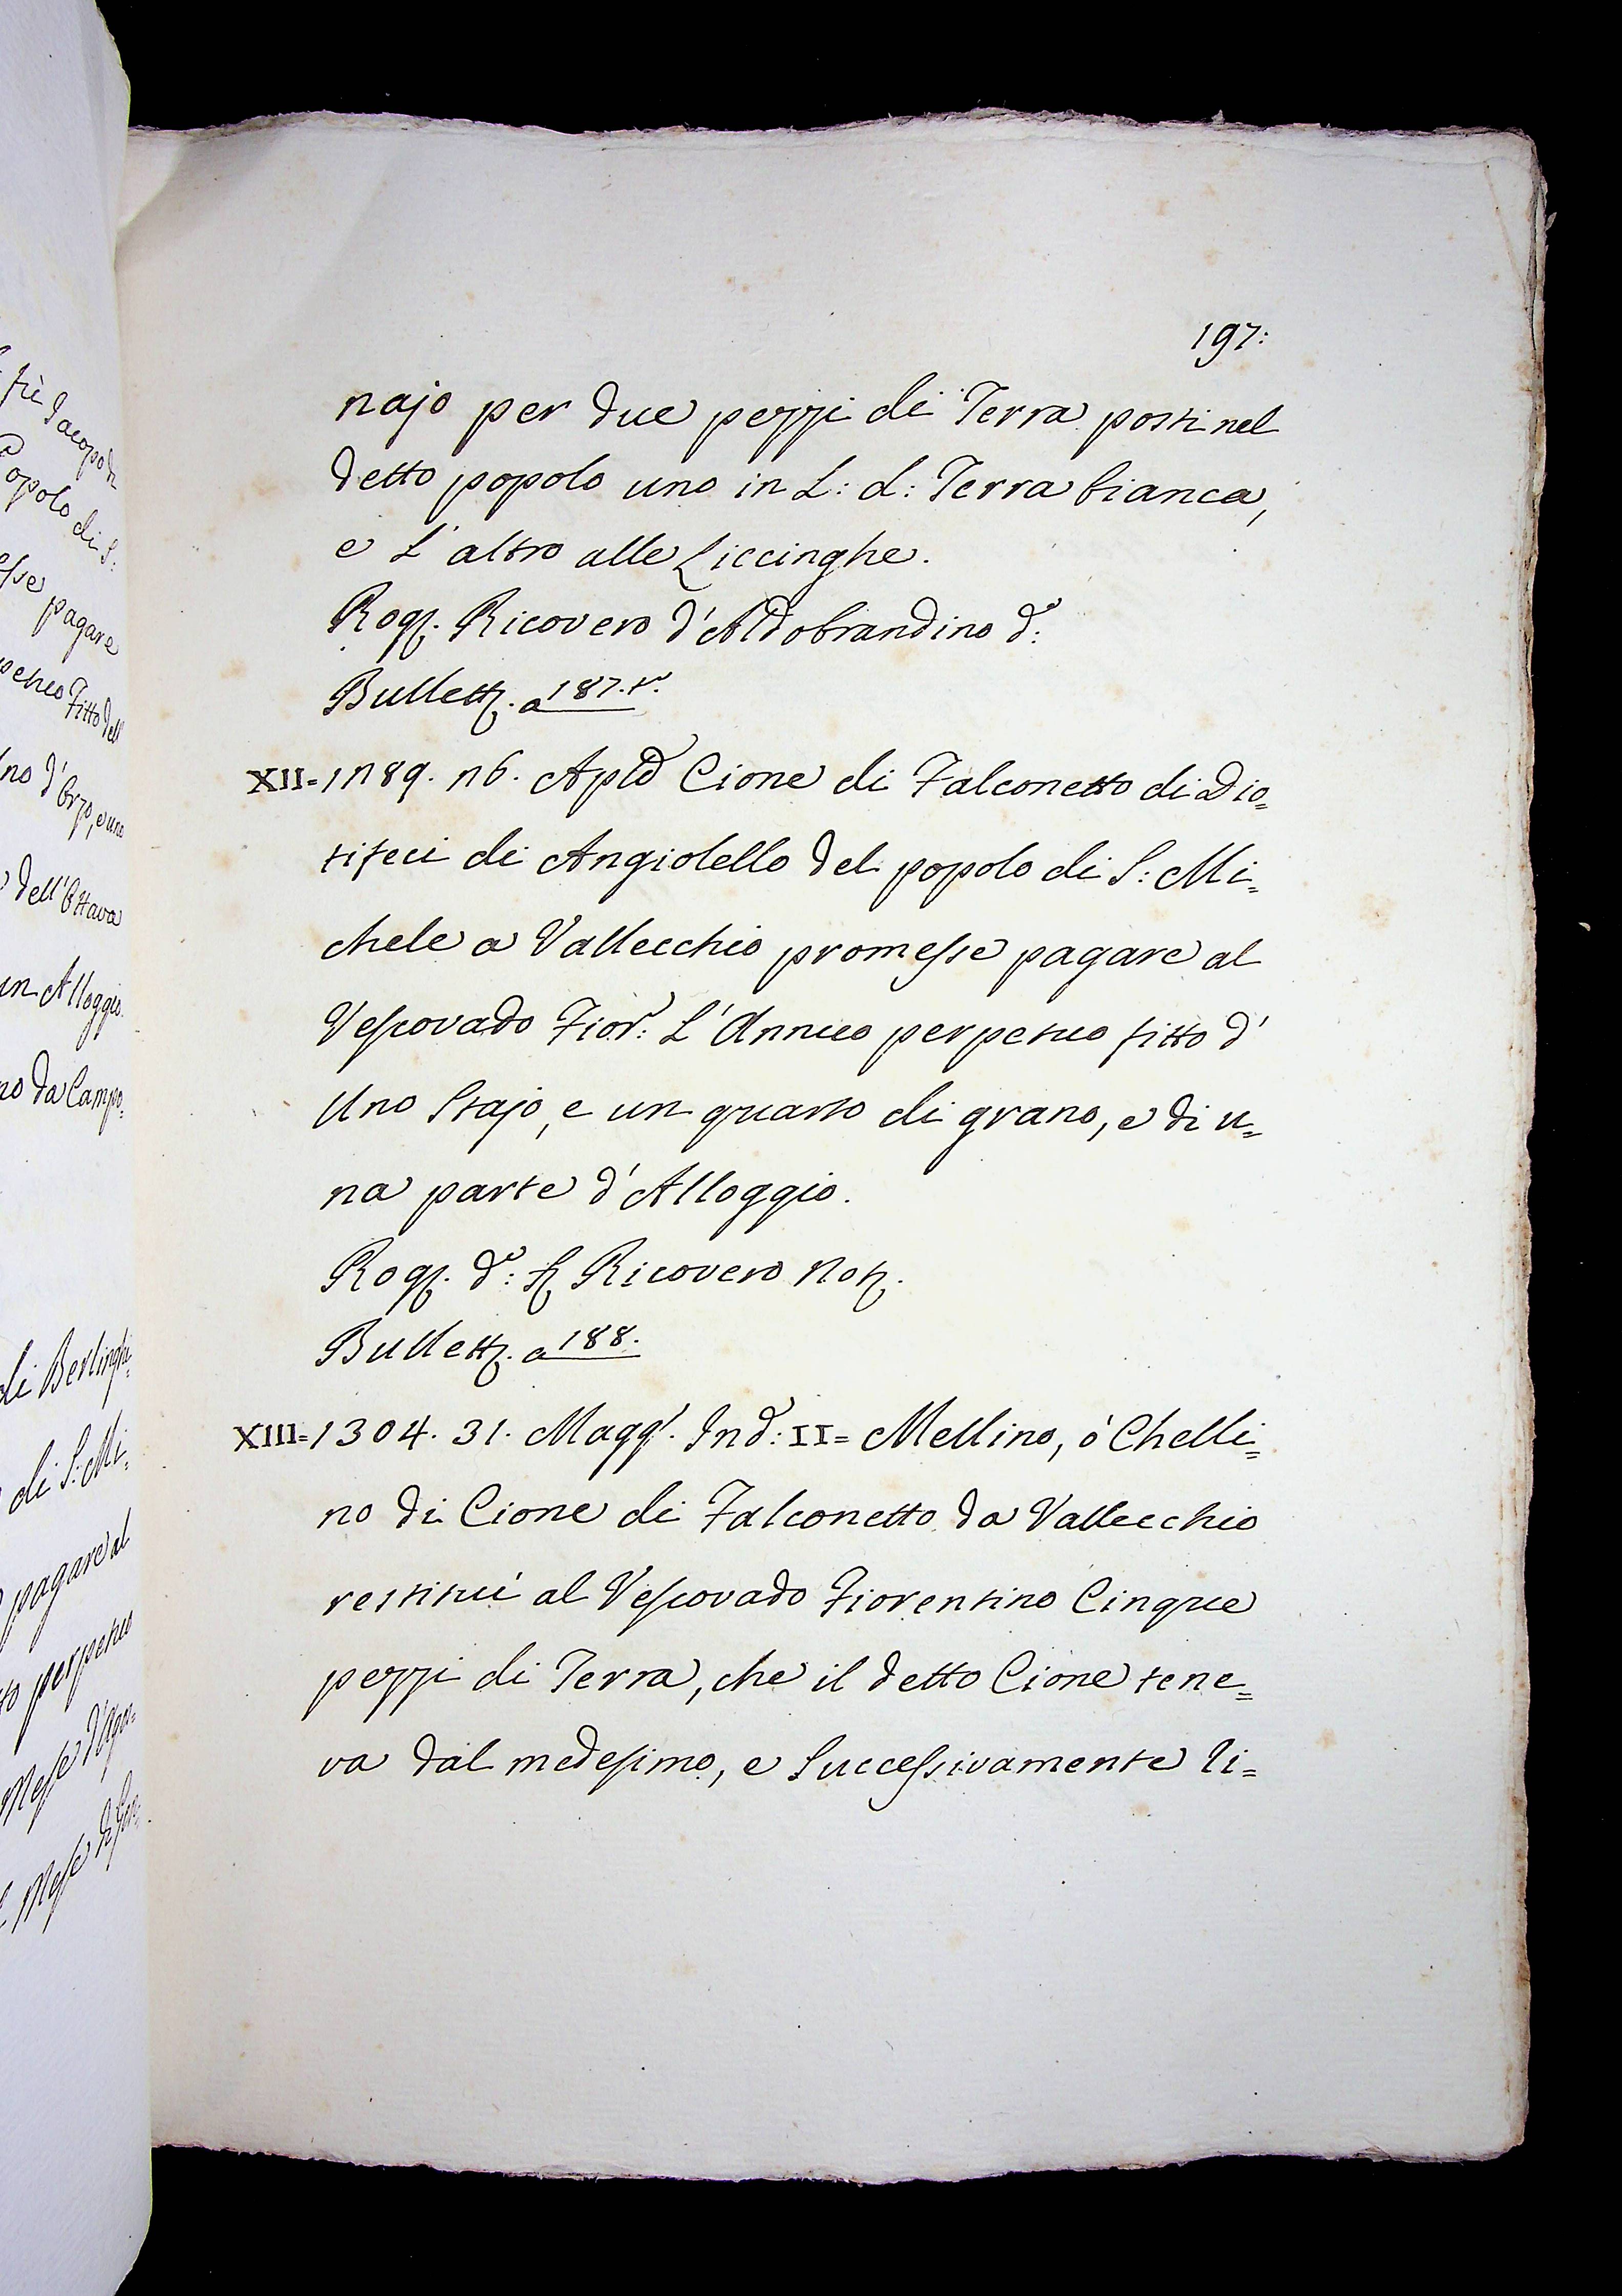 197:
najo per due pezzi di Terra posti nel
detto popolo uno in L: d: Terra bianca,
e l'altro alle Liccinghe.
Rog. Ricovero d'Aldobrandino d:
Bullett. a 187. t.
XII= 1289. 26. Aple Cione di Falconetto di Dio=
tifeci di Angiolello del popolo di S: Mi=
chele a Vallecchio promesse pagare al
Vescovado Fior: L'Annuo perpetuo fitto d'
Uno Stajo, e un quarto di grano, e di u=
na parte d'Alloggio.
Rog. do: Ricovero Not.
Bullett. a 188.
XIII= 1304. 31. Magg. Ind: II= Mellino, ò Chelli=
no di Cione di Falconetto da Vallecchio
restituì al Vescovado Fiorentino Cinque
pezzi di Terra, che il detto Cione tene=
va dal medesimo, e Successivamente li=
Jacopo
Popolo di S:
pagare
Fitto dell
dell'Ottava
un Alloggio.
no da Campo=
di Berlinghi=
di S: Mi=
pagare al
perpetuo
Mese d'Ago=
Mese di